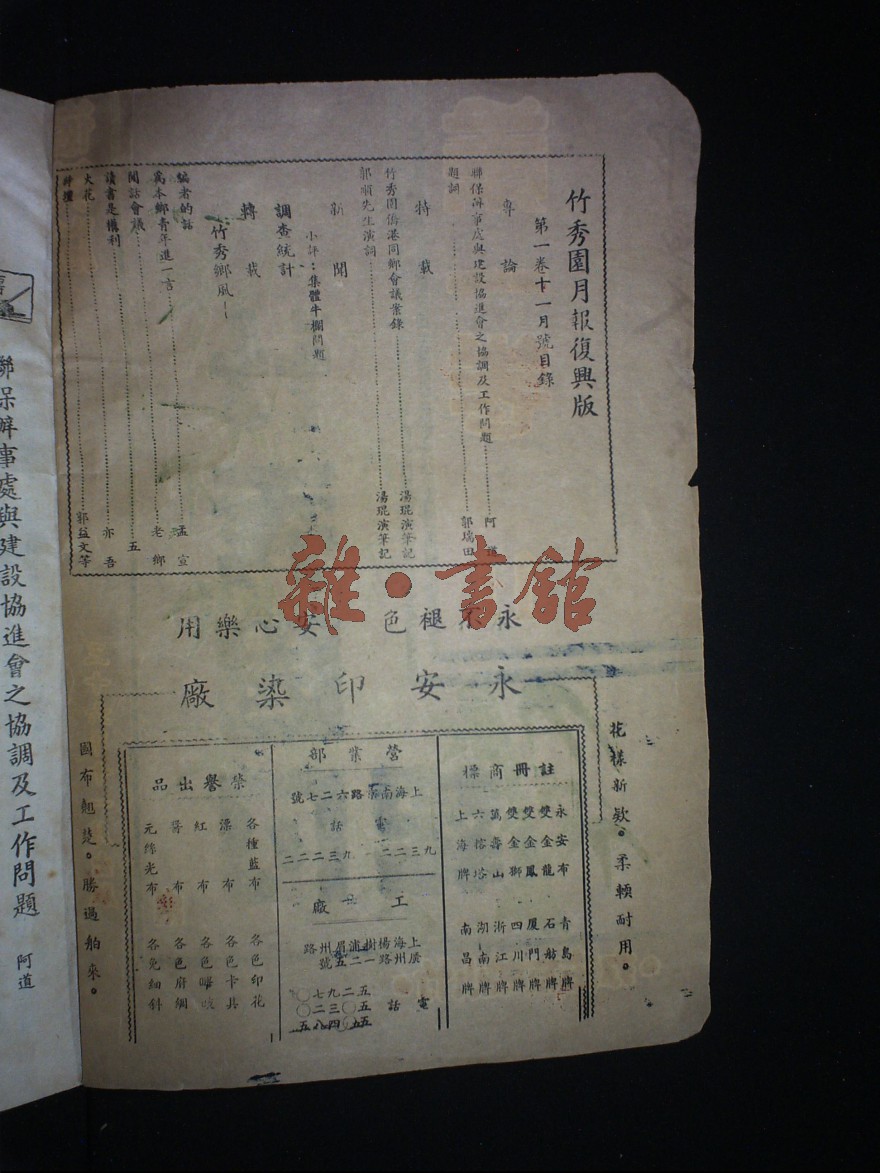 竹秀園月報復興版
第一卷十一月號目錄
專論
聯保辦事處與建設協進會之協調及工作問題 阿道
題詞 郭瑞田
特載
竹秀園僑港同鄉會議案錄 湯琨演筆記
郭順先生演詞 湯琨演筆記
新聞
小評：集體牛欄問題
調查統計
轉載
竹秀鄉風
編者的話 孟宣
為本鄉青年進一言 老鄉
閒話會議 五
讀書是權利 亦吾
火花 郭益文等
雜·書館
永不褪色 安心樂用
永安印染廠
花樣新欵。柔輭耐用。
註冊商標
永安布 青島牌
雙金龍 石舫牌
雙金鳳 厦門牌
雙金獅 四川牌
萬壽山 浙江牌
六榕塔 湖南牌
上海牌 南昌牌
營業部
上海南京路六二七號
電話
九三二二 九三二二二
工廠
上海楊樹浦眉州路
電話
榮譽出品
各種藍布 各色印花
漂布 各色卡其
紅布 各色嗶嘰
布 各色府綢
元絲光布 各免細斜
國布翹楚。勝過舶來。
聯保辦事處與建設協進會之協調及工作問題 阿道